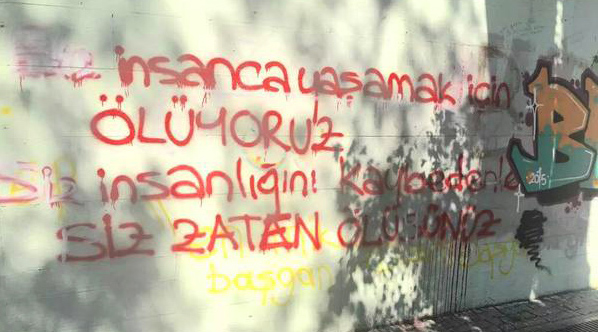 Biz insanca yaşamak için
ÖLÜYORUZ
siz insanlığını kaybedenler
SİZ ZATEN ÖLÜSÜNÜZ
başgan
2015